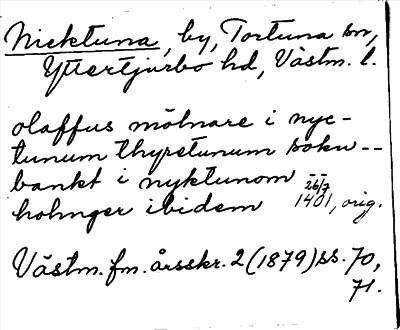 Nicktuna, by, Tortuna sn,
Yttertjurbo hd, Västm. l.
olaffus mölnare i nyc-
tunum thyretunum sokn--
bankt i nyktunom 26/7
hohnger ibidem 1401, orig.
Västm. fm. årsskr. 2 (1879) ss. 70,
71.